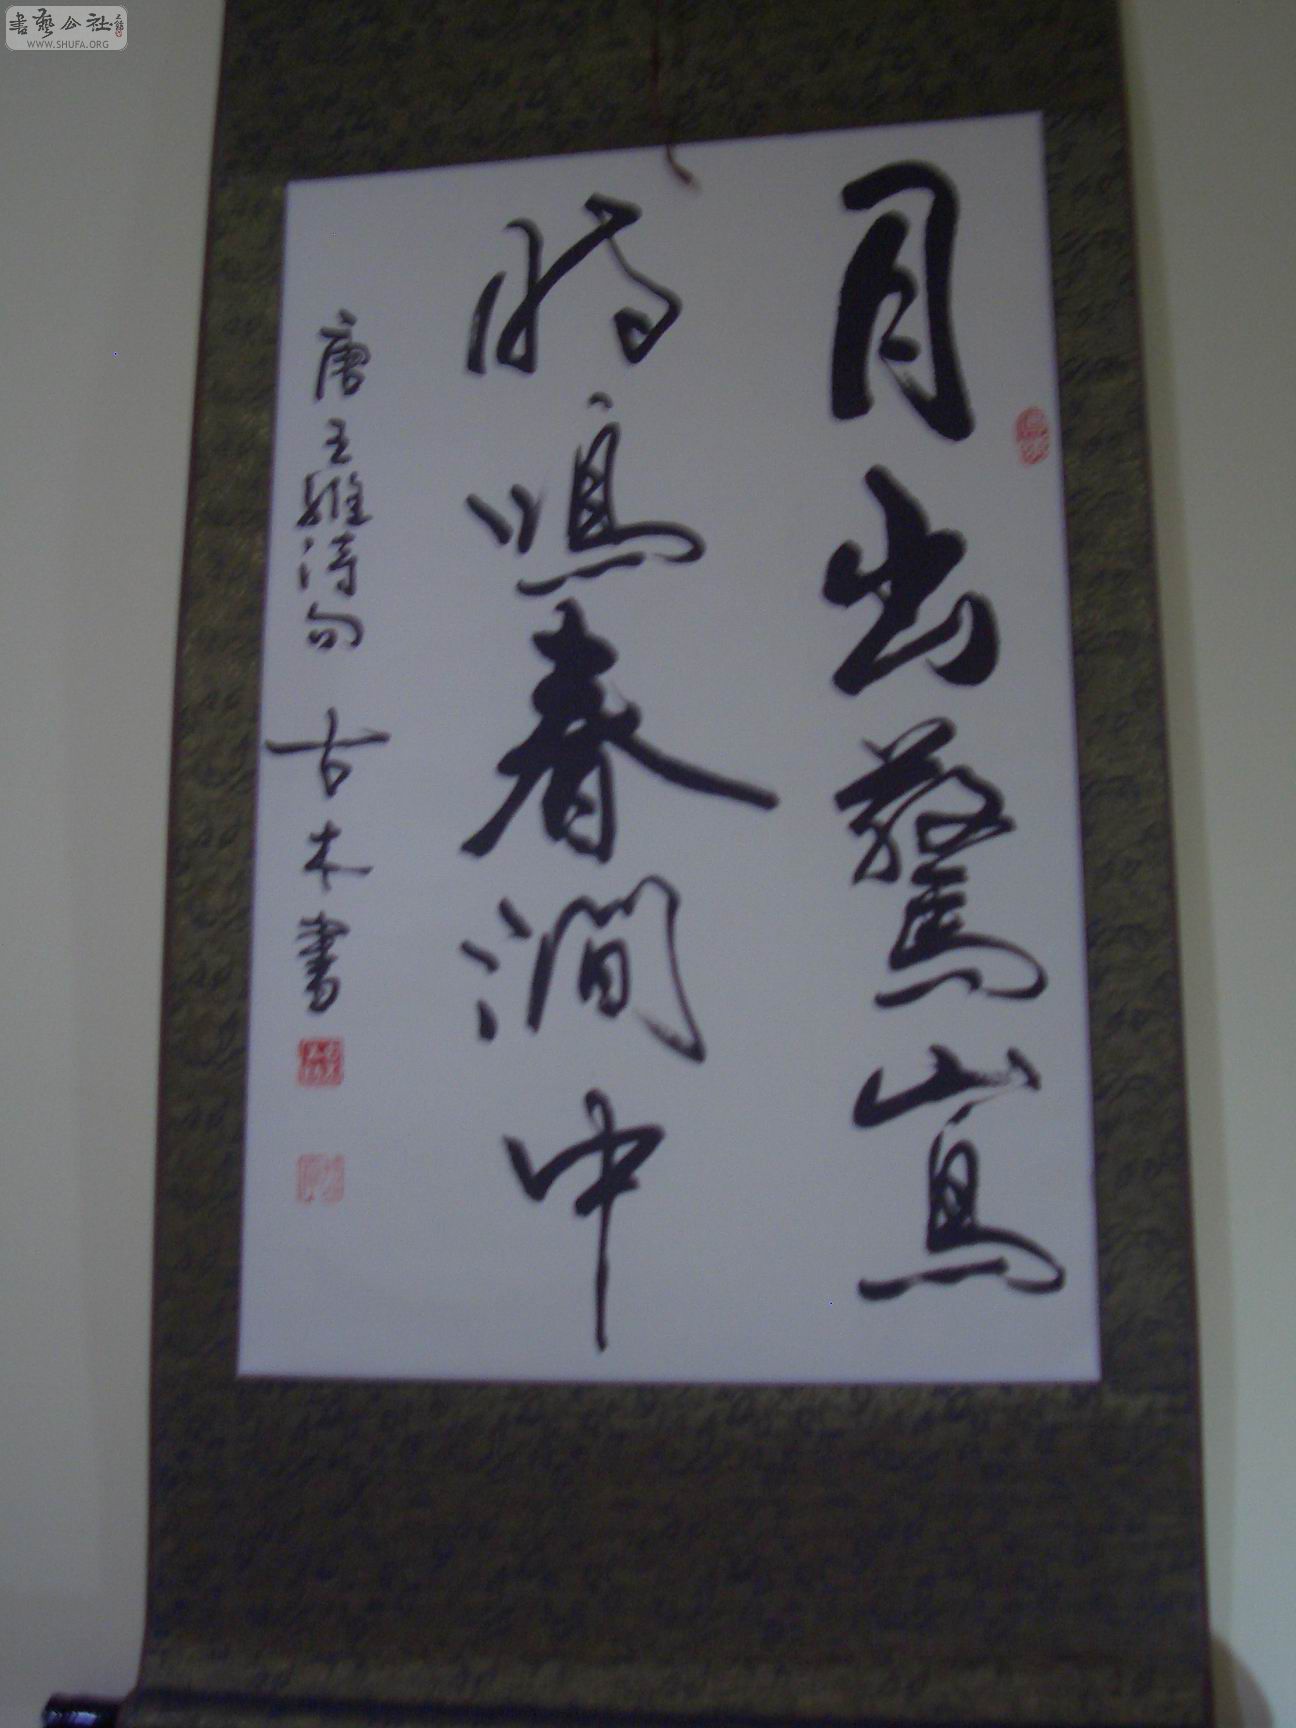 書藝公社
WWW.SHUFA.ORG
月出驚山鳥
時鳴春澗中
唐王維詩句 古木書